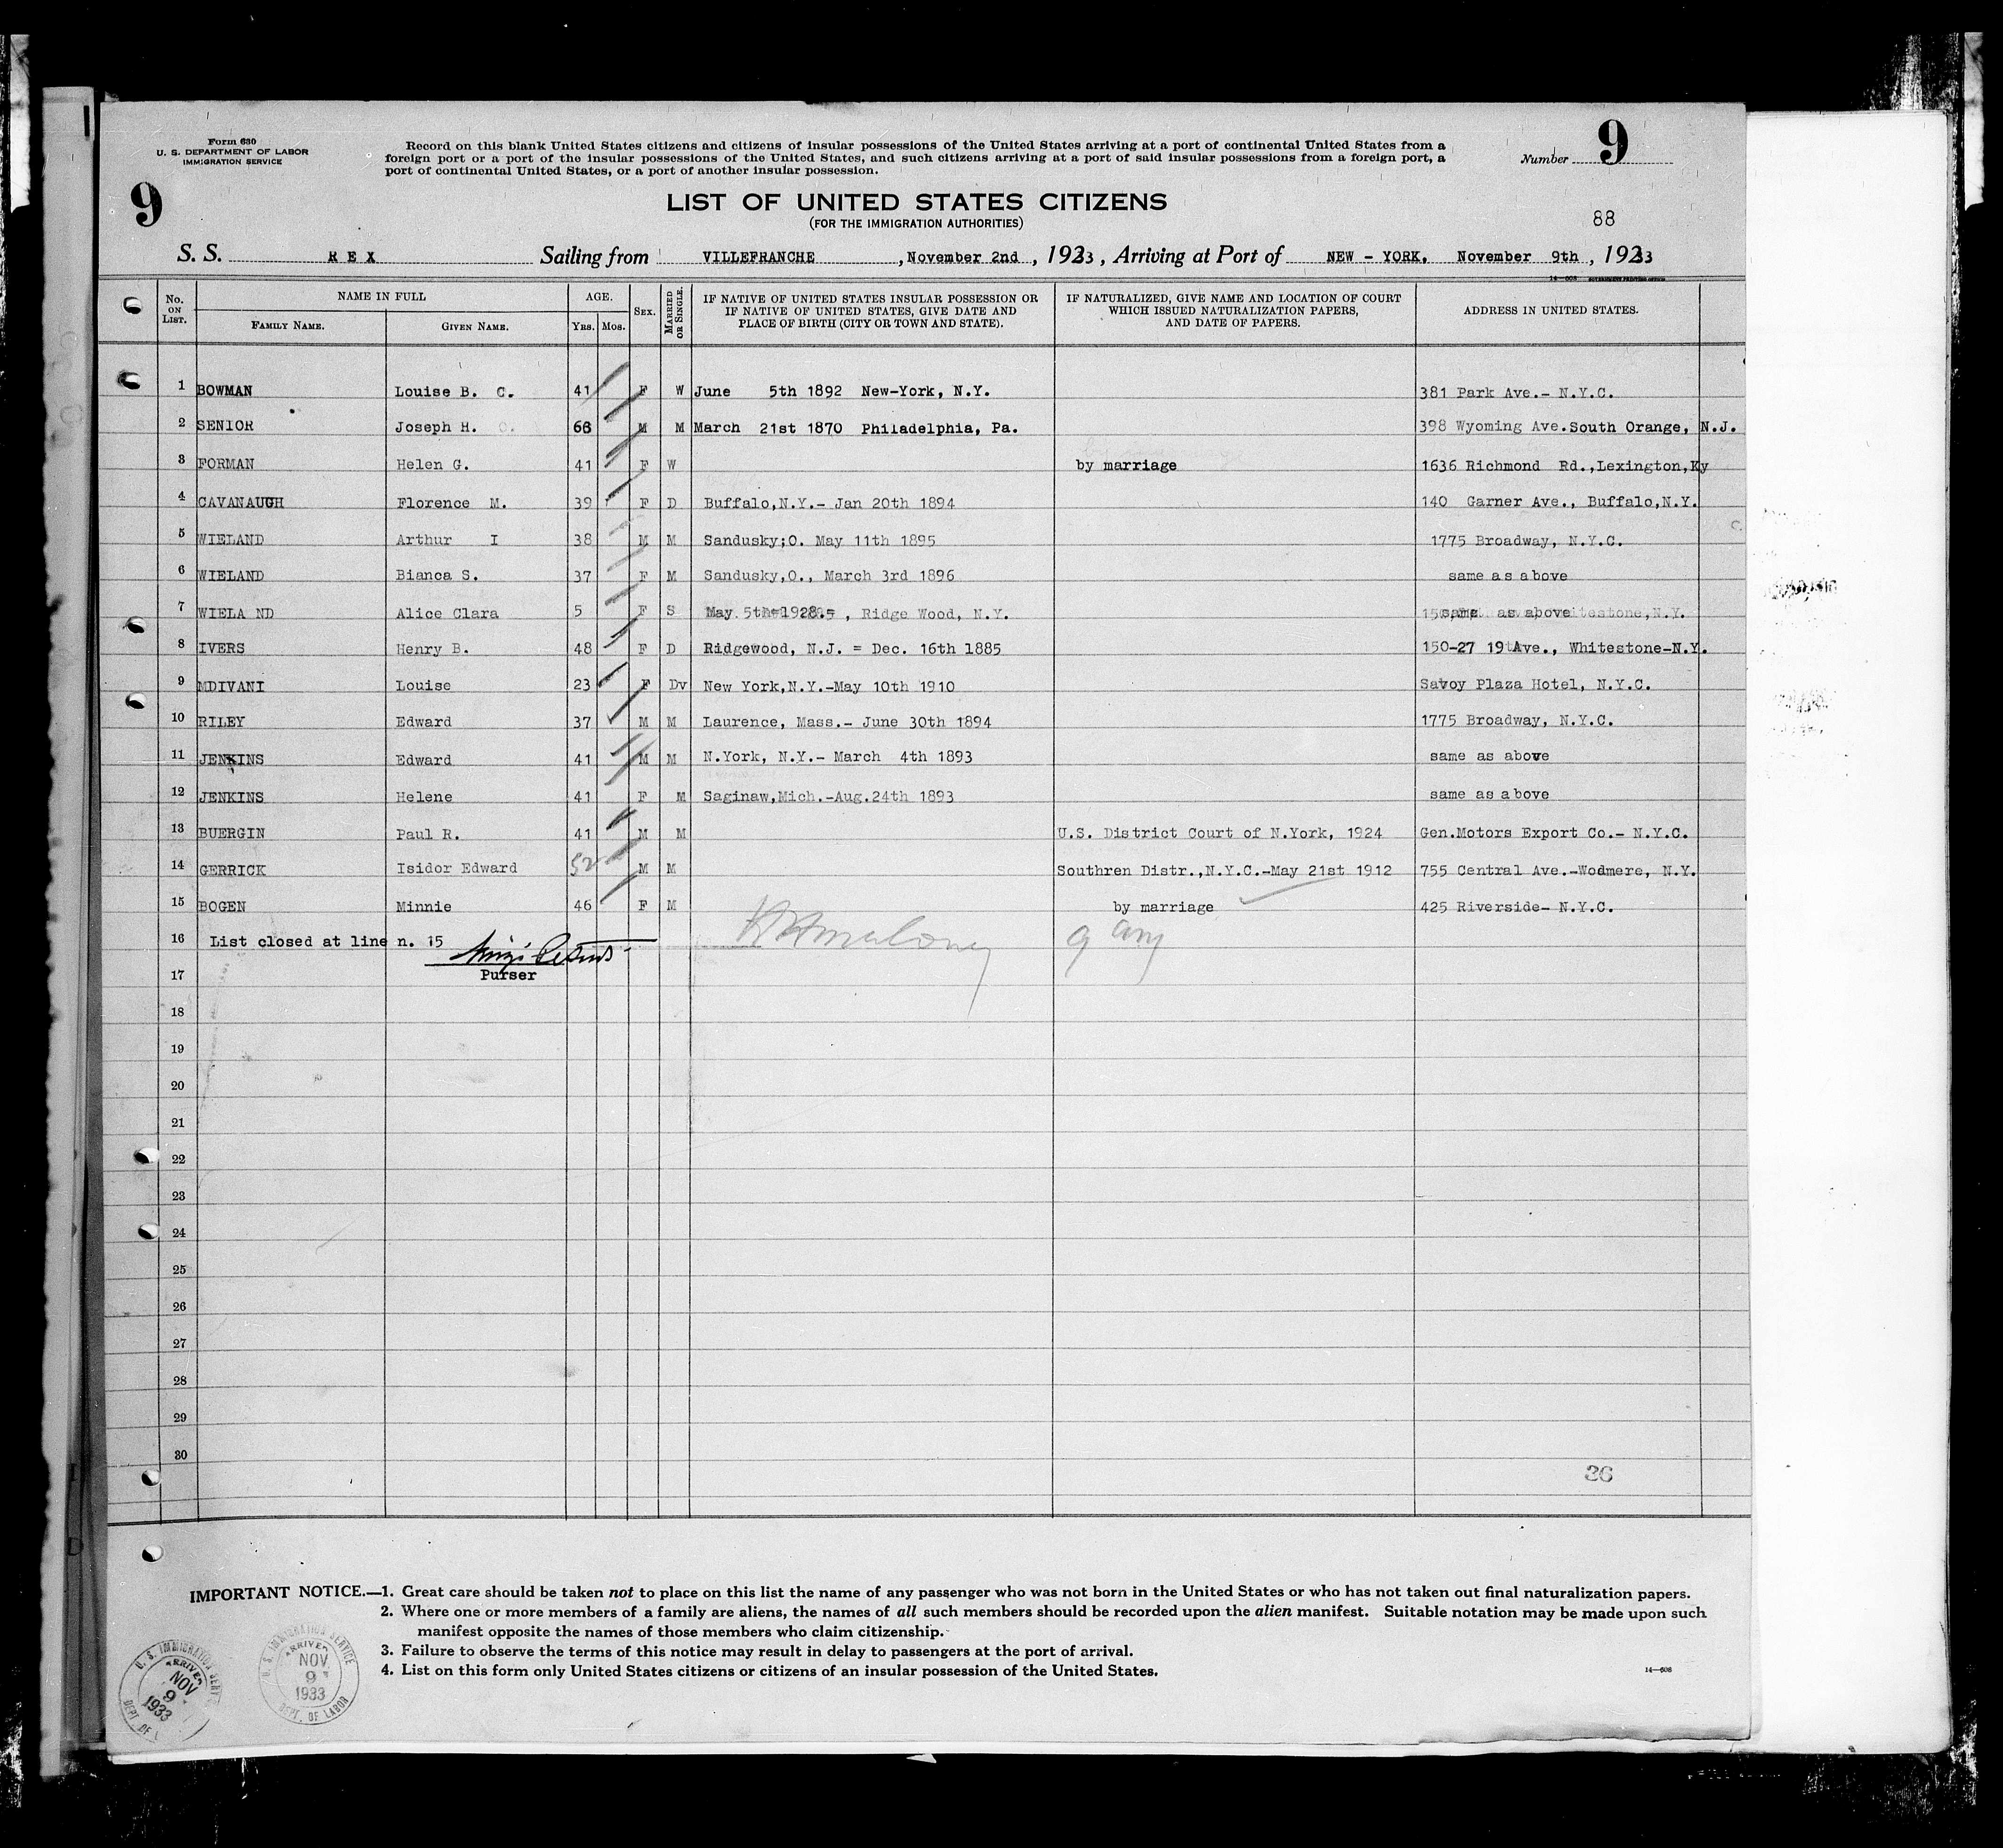 Form 630
U. S. DEPARTMENT OF LABOR
IMMIGRATION SERVICE
9
Record on this blank United States citizens and citizens of insular possessions of the United States arriving at a port of continental United States from a
foreign port or a port of the insular possessions of the United States, and such citizens arriving at a port of said insular possessions from a foreign port, a
port of continental United States, or a port of another insular possession.
Number 9
LIST OF UNITED STATES CITIZENS
(FOR THE IMMIGRATION AUTHORITIES)
88
S. S. REX Sailing from VILLEFRANCHE, November 2nd, 1933, Arriving at Port of NEW - YORK, November 9th, 1933
No. ON LIST. NAME IN FULL FAMILY NAME. GIVEN NAME. AGE. YRS. MOS. SEX. MARRIED OR SINGLE. IF NATIVE OF UNITED STATES INSULAR POSSESSION OR IF NATIVE OF UNITED STATES, GIVE DATE AND PLACE OF BIRTH (CITY OR TOWN AND STATE). IF NATURALIZED, GIVE NAME AND LOCATION OF COURT WHICH ISSUED NATURALIZATION PAPERS, AND DATE OF PAPERS. ADDRESS IN UNITED STATES.
1 BOWMAN Louise B. C. 41 F W June 5th 1892 New-York, N.Y. 381 Park Ave.- N.Y.C.
2 SENIOR Joseph H. M M March 21st 1870 Philadelphia, Pa. 398 Wyoming Ave.South Orange, N.J.
3 FORMAN Helen G. 41 F W by marriage 1636 Richmond Rd.,Lexington,Ky
4 CAVANAUGH Florence M. 39 F D Buffalo,N.Y.- Jan 20th 1894 140 Garner Ave., Buffalo,N.Y.
5 WIELAND Arthur I 38 M M Sandusky;O. May 11th 1895 1775 Broadway, N.Y.C.
6 WIELAND Bianca S. 37 F M Sandusky,O., March 3rd 1896 same as above
7 WIELA ND Alice Clara 5 F S May 5th 1928 , Ridge Wood, N.Y. same as above
8 IVERS Henry B. 48 F D Ridgewood, N.J. = Dec. 16th 1885 150-27 19 Ave., Whitestone-N.Y.
9 MDIVANI Louise 23 F Dv New York,N.Y.-May 10th 1910 Savoy Plaza Hotel, N.Y.C.
10 RILEY Edward 37 M M Laurence, Mass.- June 30th 1894 1775 Broadway, N.Y.C.
11 JENKINS Edward 41 M M N.York, N.Y.- March 4th 1893 same as above
12 JENKINS Helene 41 F M Saginaw,Mich.-Aug.24th 1893 same as above
13 BUERGIN Paul R. 41 M M U.S. District Court of N.York, 1924 Gen.Motors Export Co.- N.Y.C.
14 GERRICK Isidor Edward 52 M M Southren Distr.,N.Y.C.-May 21st 1912 755 Central Ave.-Wodmere, N.Y.
15 BOGEN Minnie 46 F M by marriage 425 Riverside- N.Y.C.
16 List closed at line n. 15
17 Purser
18
19
20
21
22
23
24
25
26
27
28
29
30
36
IMPORTANT NOTICE.—1. Great care should be taken not to place on this list the name of any passenger who was not born in the United States or who has not taken out final naturalization papers.
2. Where one or more members of a family are aliens, the names of all such members should be recorded upon the alien manifest. Suitable notation may be made upon such
manifest opposite the names of those members who claim citizenship.
3. Failure to observe the terms of this notice may result in delay to passengers at the port of arrival.
4. List on this form only United States citizens or citizens of an insular possession of the United States.
14—608
U. S. IMMIGRATION SERVICE ARRIVED NOV 9 1933 DEPT. OF
U. S. IMMIGRATION SERVICE ARRIVED NOV 9 1933 DEPT. OF LABOR